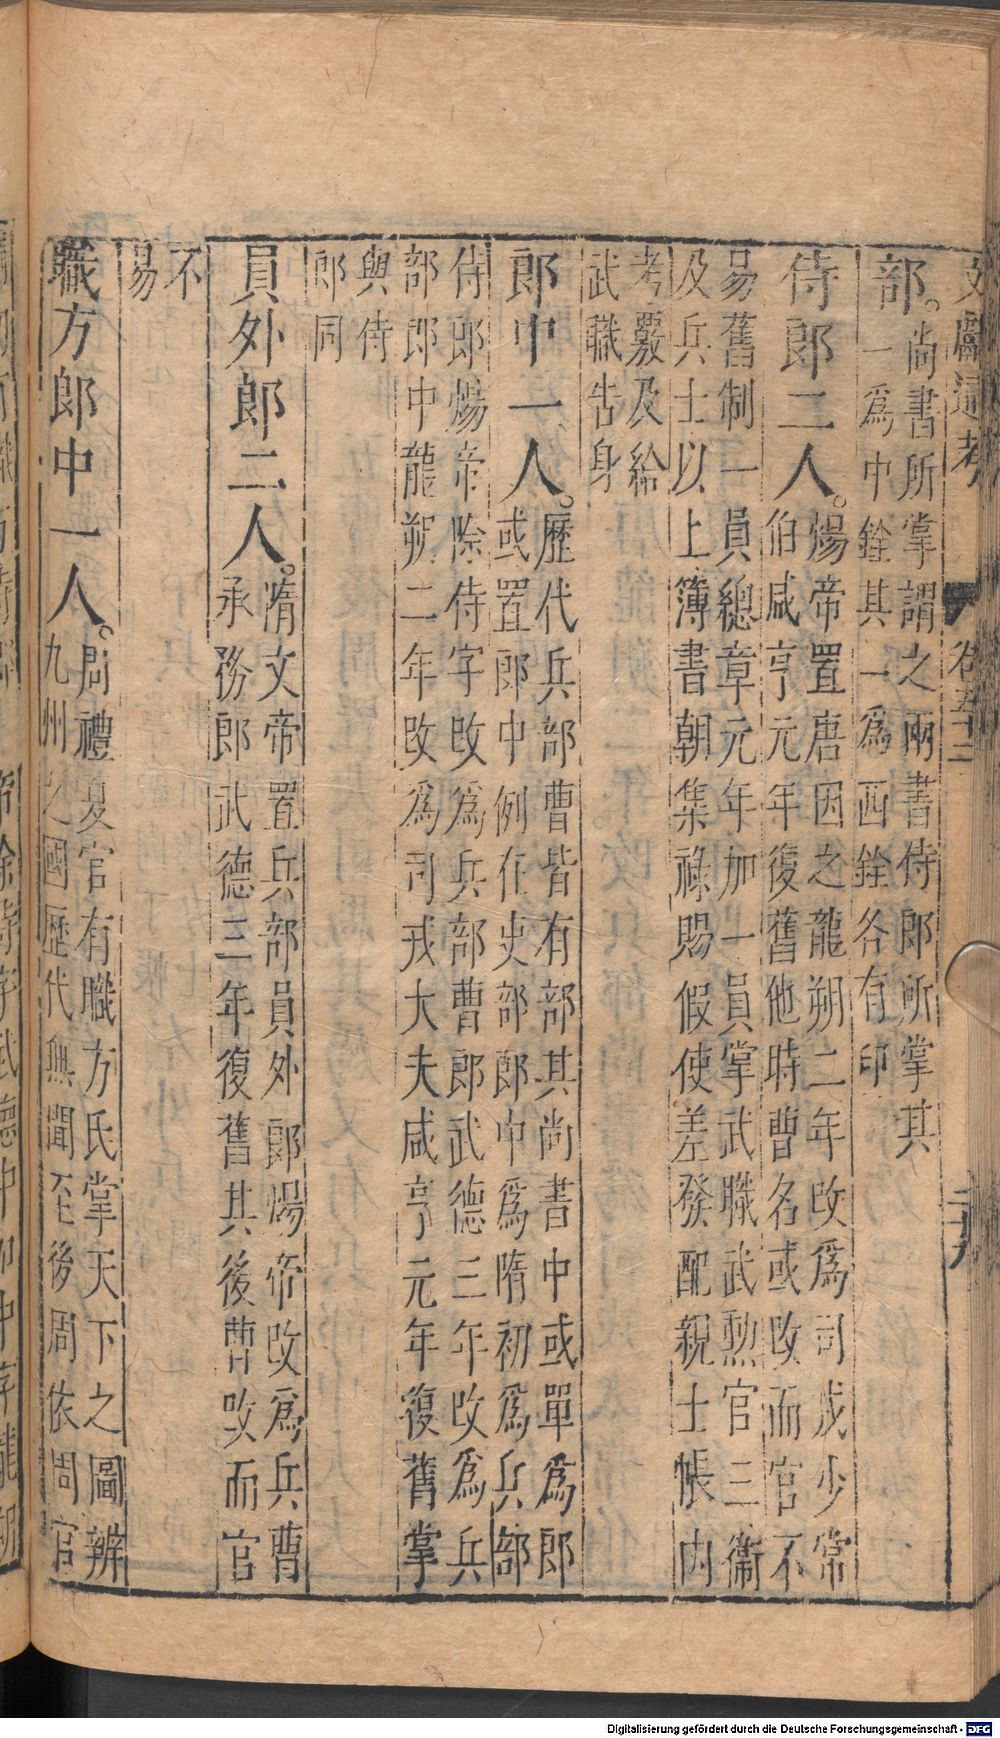 文獻通考 卷五十二
部。尚書所掌謂之兩書侍郎所掌其
一爲中銓其一爲西銓各有印
侍郎二人。煬帝置唐因之龍朔二年改爲司戎少常
伯咸亨元年復舊他時曹名或改而官不
易舊制一員總章元年加一員掌武職武勲官三衞
及兵士以上簿書朝集祿賜假使差發配親士帳內
考覈及給
武職告身
郎中一人。歷代兵部曹皆有部其尚書中或單爲郎
或置郎中例在史部郎中爲隋初爲兵部
侍郎煬帝除侍字改爲兵部曹郎武德三年改爲兵
部郎中龍朔二年改爲司戎大夫咸亨元年復舊掌
與侍
郎同
員外郎二人。隋文帝置兵部員外郎煬帝改爲兵曹
承務郎武德三年復舊其後曹改而官
不
易
職方郎中一人。周禮夏官有職方氏掌天下之圖辨
九州之國歷代無聞至後周依周官
Digitalisierung gefördert durch die Deutsche Forschungsgemeinschaft - DFG